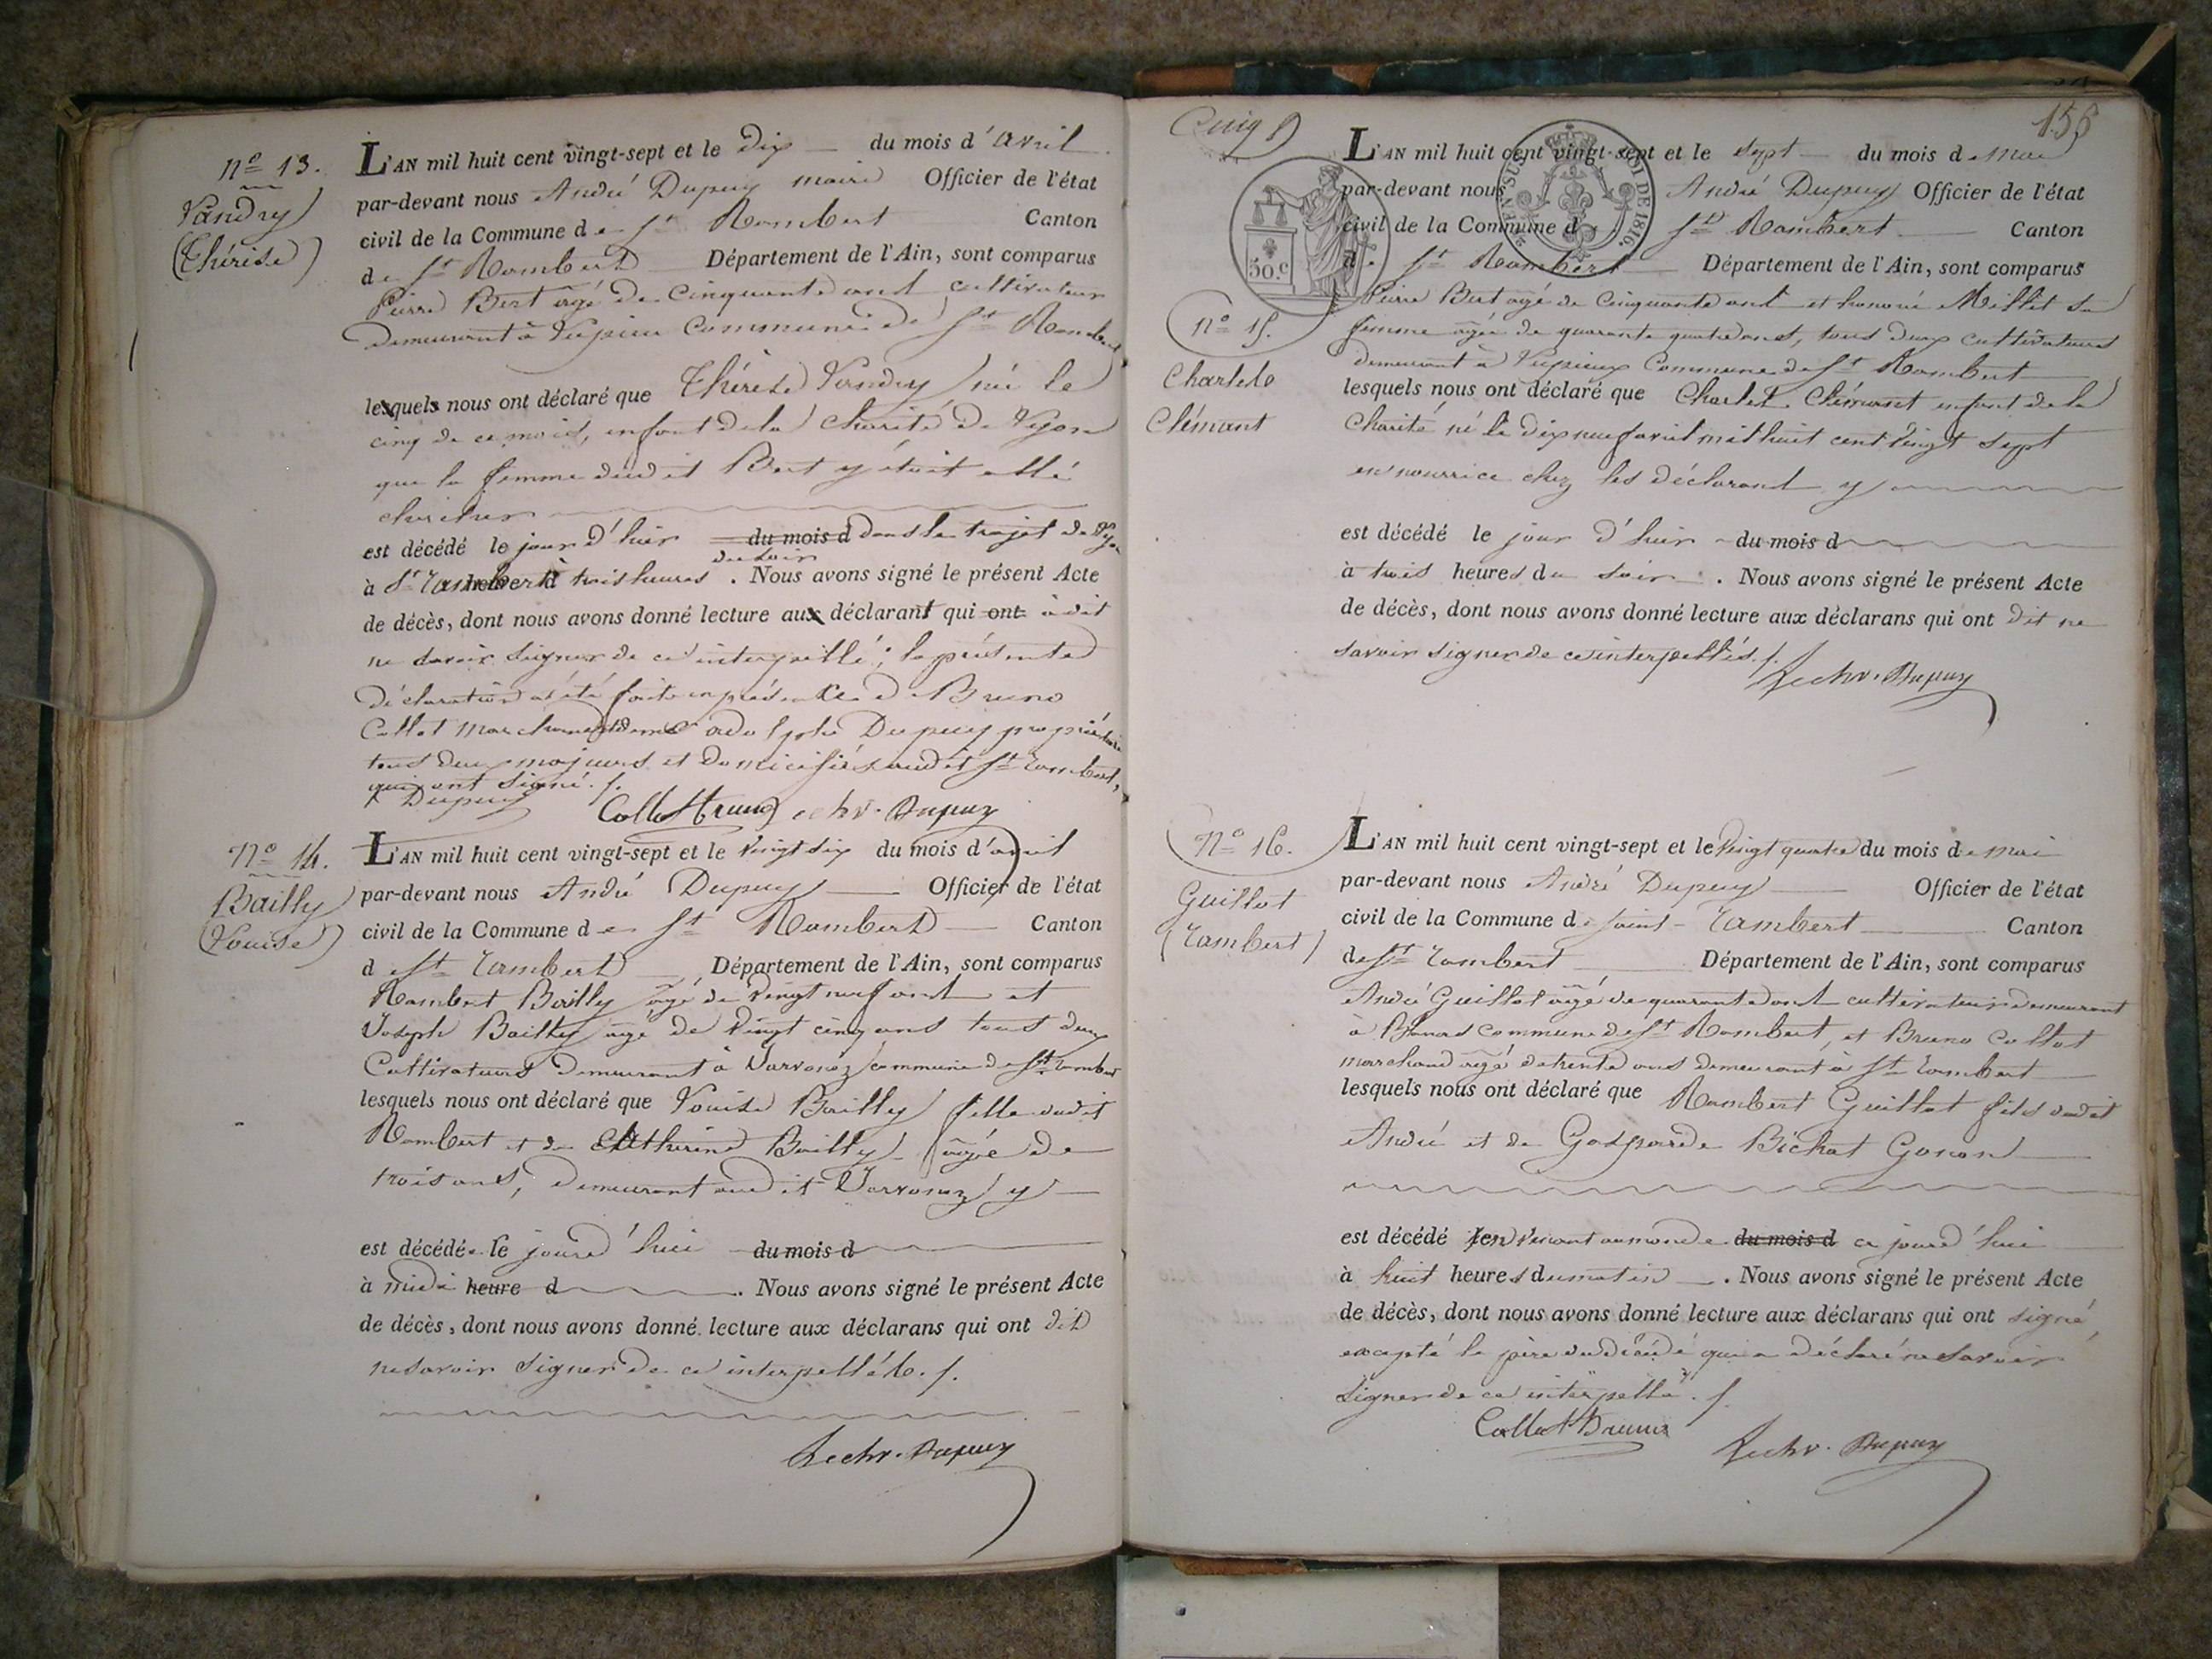 nº 13.
Vandry
(Thérèse)
L'AN mil huit cent vingt-sept et le dix du mois d'avril
par-devant nous André Dupuy maire Officier de l'état
civil de la Commune de St Rambert Canton
de St Rambert Département de l'Ain, sont comparus
Pierre Bert âgé de cinquante ans cultivateur
demeurant à Vupieu commune de St Rambert
lesquels nous ont déclaré que Thérèse Vandry né le
cinq de ce mois, enfant de la charité de Lyon
que la femme dudit Bert y étoit allé
chercher
est décédé le jour d'hier du mois d dans le trajet de Lyon
à St Rambert à trois heures du soir. Nous avons signé le présent Acte
de décès, dont nous avons donné lecture aux déclarant qui ont à dit
ne savoir signer de ce interpellé; la présente
déclaration a été faite en présence de Bruno
Collot marchand et adolphe Dupuy propriétaire
tous deux majeurs et domiciliés audit St Rambert,
qui ont signé.
Dupuy Collot Bruno lechr. Dupuy
Nº 14.
Bailly
(Louise)
L'AN mil huit cent vingt-sept et le vingt six du mois d'avril
par-devant nous André Dupuy Officier de l'état
civil de la Commune de St Rambert Canton
de St Rambert Département de l'Ain, sont comparus
Rambert Bailly âgé de vingt neuf ans et
Joseph Bailly âgé de vingt cinq ans tous deux
Cultivateurs demeurant à Javornoz commune de St Rambert
lesquels nous ont déclaré que Louise Bailly fille dudit
Rambert et de Catherine Bailly âgée de
trois ans, demeurant audit Javornoz y
est décédée le jourd'hui du mois d
à midi heure d. Nous avons signé le présent Acte
de décès, dont nous avons donné lecture aux déclarans qui ont dit
ne savoir signer de ce interpellés.
lechr. Dupuy
156
50.c
LOI DE 1816.
nº 15.
Charlet
Clémant
L'AN mil huit cent vingt-sept et le sept du mois de mai
par-devant nous André Dupuy Officier de l'état
civil de la Commune de St Rambert Canton
de St Rambert Département de l'Ain, sont comparus
Pierre Bert âgé de cinquante ans et honoré Millet sa
femme âgée de quarante quatre ans, tous deux cultivateurs
demeurant à Vupieux Commune de St Rambert
lesquels nous ont déclaré que Charlet Clémant enfant de la
Charité né le dix neuf avril mil huit cent vingt sept
en nourrice chez les déclarant y
est décédé le jour d'hier du mois d
à trois heures du soir. Nous avons signé le présent Acte
de décès, dont nous avons donné lecture aux déclarans qui ont dit ne
savoir signer de ce interpellés.
lechr. Dupuy
Nº 16.
Guillot
(Rambert)
L'AN mil huit cent vingt-sept et le vingt quatre du mois de mai
par-devant nous André Dupuy Officier de l'état
civil de la Commune de saint-Rambert Canton
de St Rambert Département de l'Ain, sont comparus
André Guillot âgé de quarante ans cultivateur demeurant
à Blanas commune de St Rambert, et Bruno Collot
marchand âgé de trente ans demeurant à St Rambert
lesquels nous ont déclaré que Rambert Guillot fils dudit
André et de Gasparde Bichat Gonon
est décédé en venant au monde du mois d ce jourd'hui
à huit heures du matin. Nous avons signé le présent Acte
de décès, dont nous avons donné lecture aux déclarans qui ont signé,
excepté le père du décédé qui a déclaré ne savoir
signer de ce interpellé.
Collot Bruno lechr. Dupuy